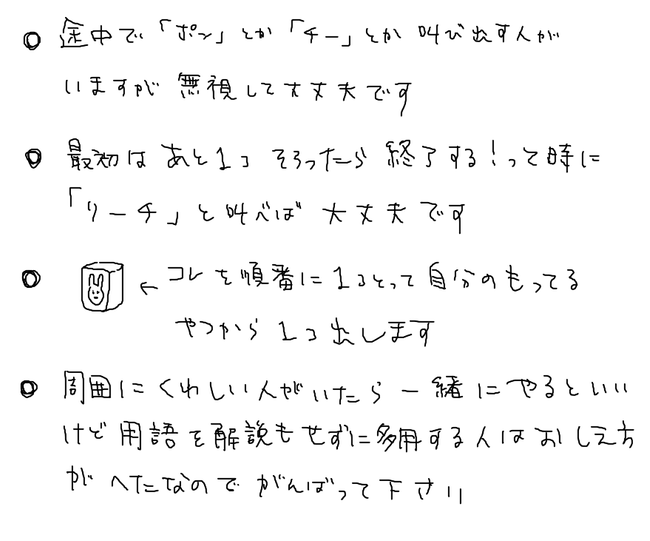 途中で「ポン」とか「チー」とか叫び出す人が
いますが無視して大丈夫です
最初はあと1コそろったら終了する!って時に
「リーチ」と叫べば大丈夫です
←コレを順番に1コとって自分のもってる
やつから1コ出します
周囲にくわしい人がいたら一緒にやるといい
けど用語を解説もせずに多用する人はおしえ方
がへたなのでがんばって下さい